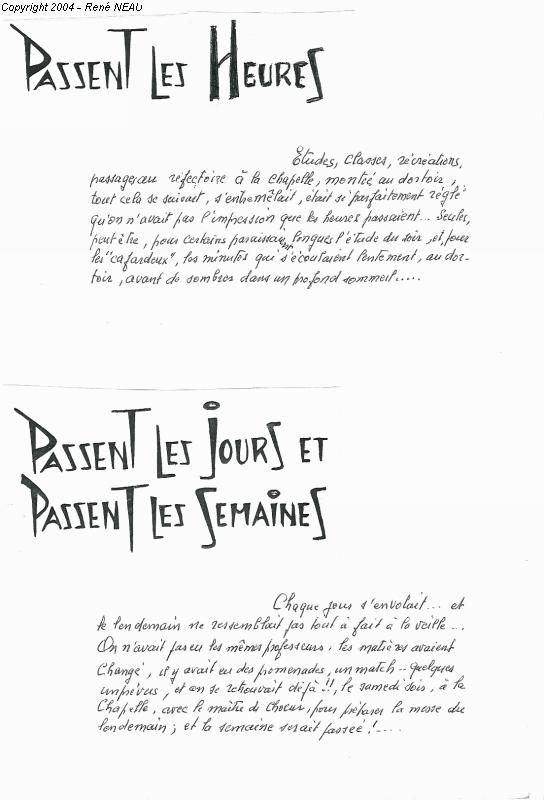 Copyright 2004 - René NEAU
PASSENT LES HEURES
Etudes, classes, récréations,
passage au réfectoire à la chapelle, montée au dortoir,
tout cela se suivait, s'entremêlait, était si parfaitement réglé
qu'on n'avait pas l'impression que les heures passaient... Seules,
peut être, pour certains paraissaient longues l'étude du soir, et pour
les "cafardeux", les minutes qui s'écoulaient lentement, au dor-
toir, avant de sombrer dans un profond sommeil.....
PASSENT LES JOURS ET
PASSENT LES SEMAINES
Chaque jour s'envolait... et
le lendemain ne ressemblait pas tout à fait à la veille...
On n'avait pas eu les mêmes professeurs, les matières avaient
changé, il y avait eu des promenades, un match... quelques
imprévus, et on se retrouvait déjà!!, le samedi soir, à la
Chapelle, avec le maître de Choeur, pour préparer la messe du
lendemain; et la semaine serait passée!....